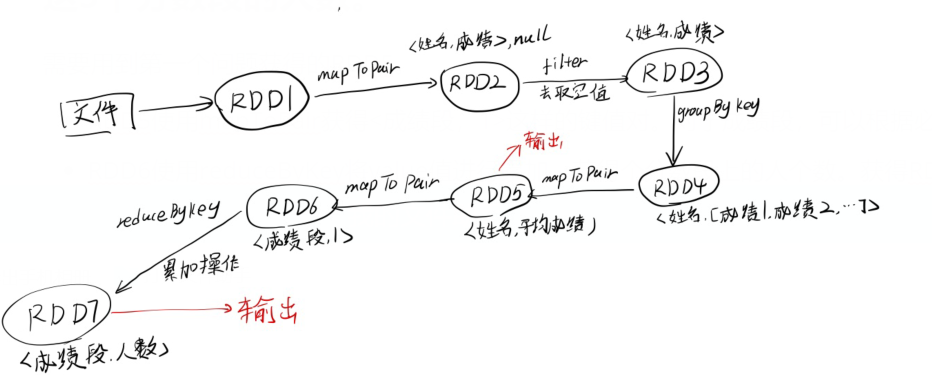 文件
RDD1
mapToPair
<姓名,成绩>,null
RDD2
filter
去取空值
<姓名,成绩>
RDD3
groupByKey
RDD4
<姓名,[成绩1,成绩2,…]>
mapToPair
输出
RDD5
<姓名,平均成绩)
mapToPair
RDD6
<成绩段,1>
reduceBykey
累加操作
RDD7
<成绩段,人数>
输出